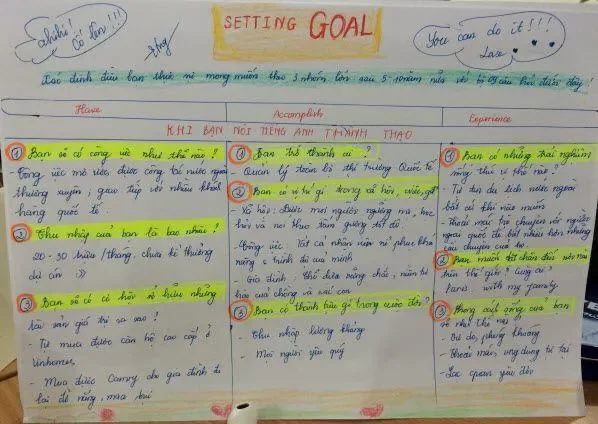 ahihi!
Cố lên!!!
SETTING GOAL
You can do it!!!
Love
Xác định điều bạn thực sự mong muốn theo 3 nhóm lớn sau 5-10 năm nữa với bộ 09 câu hỏi dưới đây!
Have
Accomplish
Experience
KHI BẠN NÓI TIẾNG ANH THÀNH THẠO
① Bạn sẽ có công việc như thế nào?
- Công việc mơ ước, được công tác nước ngoài
thường xuyên; giao tiếp với nhiều khách
hàng quốc tế.
② Thu nhập của bạn là bao nhiêu?
20 - 30 triệu/tháng, chưa kể thưởng
dự án :))
③ Bạn sẽ có sở hữu những
tài sản giá trị ra sao?
- Tự mua được căn hộ cao cấp ở
Vinhomes
- Mua được Camry cho gia đình đi
lại đỡ nắng, mưa bụi
① Bạn trở thành ai?
- Quản lý toàn bộ thị trường Quốc tế
② Bạn có vị trí gì trong xã hội, việc, gđ
- Xã hội: Được mọi người ngưỡng mộ, học
hỏi và noi theo tấm gương tốt đó
- Công việc: Tất cả nhân viên nể phục khả
năng & trình độ của mình
- Gia đình: Chỗ dựa vững chắc, niềm tự
hào của chồng và các con
③ Bạn có thành tựu gì trong cuộc đời?
- Thu nhập lương khủng
- Mọi người yêu quý
① Bạn có những trải nghiệm
sống thú vị thế nào?
- Tự tin du lịch nước ngoài
bất cứ khi nào muốn
- Thoải mái trò chuyện với người
ngoại quốc để biết nhiều hơn những
câu chuyện của họ.
② Bạn muốn đặt chân đến nơi nào
trên thế giới? Cùng ai?
Paris with my family
③ Phong cách sống của bạn
sẽ như thế nào
- Tự do, phóng khoáng
- Thoải mái, ung dung tự tại
- Lạc quan yêu đời